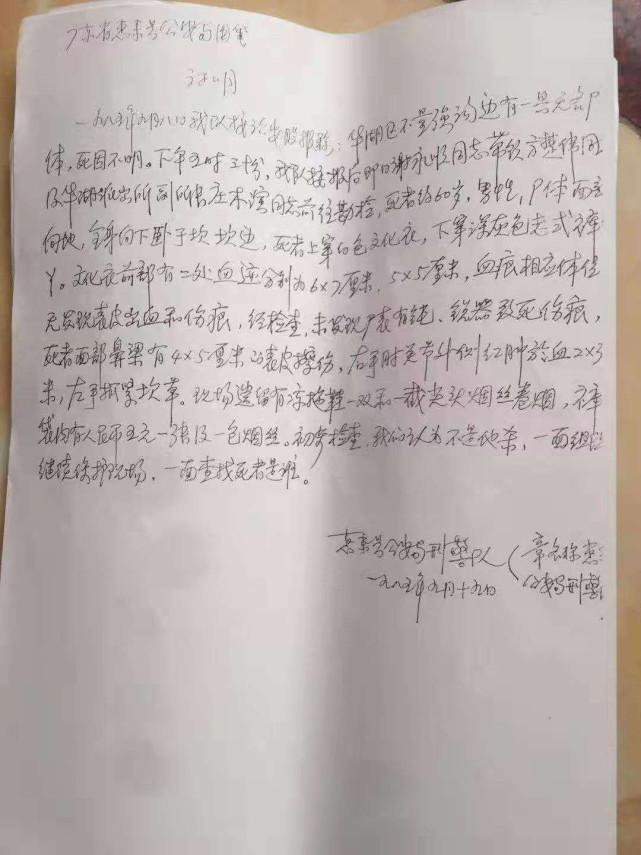 广东省惠来县公安局用笺
证明
一九八五年九月八日我队接治安股报称：华湖区不量强沟边有一具无名尸
体，死因不明。下午五时三十分，我队接报后即由谢永收同志带领方楚伟同
及华湖派出所副所长庄木滨同志前往勘检，死者约60岁，男性，尸体面主
向地，全身向下卧于坎坎边，死者上穿白色文化衣，下穿深灰色老式裤
丫。文化衣前部有二处血迹分别为6×7厘米，5×5厘米，血痕相应体位
无发现表皮出血和伤痕，经检查，未发现尸表有钝、锐器致死伤痕，
死者面部鼻梁有4×5厘米的表皮擦伤，右手肘关节外侧红肿於血2×3
米，左手抓紧坎草。现场遗留有凉拖鞋一双和一截类头烟丝卷烟，裤
袋内有人民币五元一张及一包烟丝。初步检查，我们认为不是他杀，一面组织
继续保护现场，一面查找死者是谁。
惠来县公安局刑警队（章名称惠
一九八五年九月十九日 公安局刑警